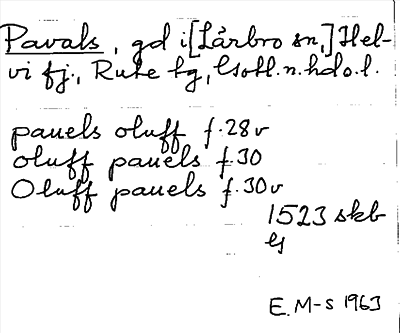 Pavals, gd i [Lärbro sn,] Hel-
vi fj., Rute tg, Gotl. n. hdo. l.
pauels oluff f. 28v
oluff pauels f. 30
Oluff pauels f. 30v
1523 skb
E. M-s 1963